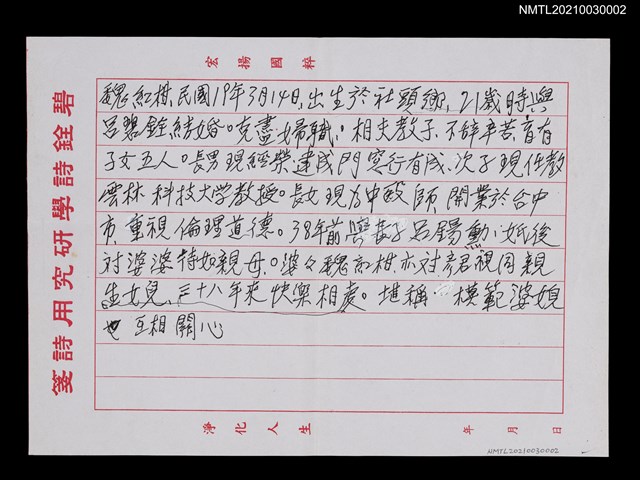 NMTL20210030002
宏揚國粹
碧銓詩學研究用詩箋
魏紅柑,民國19年3月14日,出生於社頭鄉,21歲時與
呂碧銓結婚。克盡婦職,相夫教子,不辭辛苦,育有
子女五人。長男現經營達成門窓行有成、次子現任教
雲林科技大学教授。長女現为中醫師,開業於台中
市,重視倫理道德。38年前與長子呂錫勲婚後
对婆婆待如親母。婆々魏紅柑亦对彥君視同親
生女兒,三十八年來快樂相處。堪稱模範婆媳
互相關心
淨化人生
年 月 日
NMTL20210030002